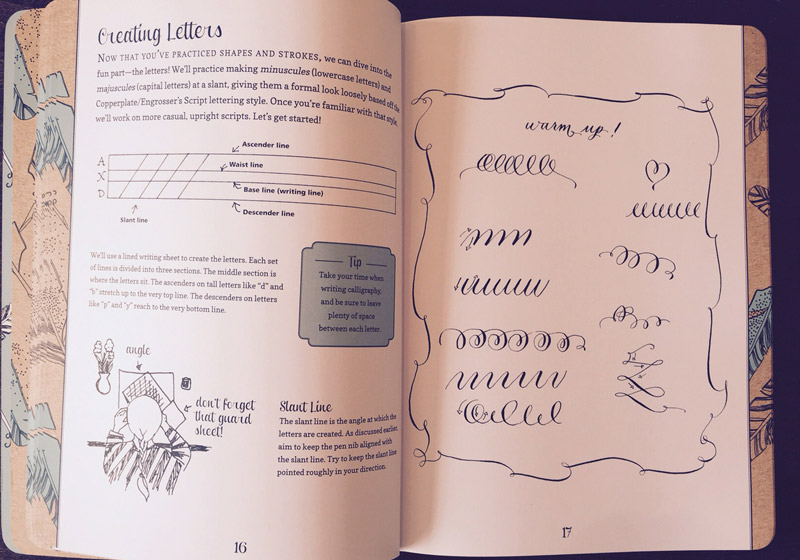 Creating Letters
NOW THAT YOU'VE PRACTICED SHAPES AND STROKES, we can dive into the
fun part—the letters! We'll practice making minuscules (lowercase letters) and
majuscules (capital letters) at a slant, giving them a formal look loosely based off the
Copperplate/Engrosser's Script lettering style. Once you're familiar with that style,
we'll work on more casual, upright scripts. Let's get started!
Ascender line
A
Waist line
X
Base line (writing line)
D
Descender line
Slant line
We'll use a lined writing sheet to create the letters. Each set
of lines is divided into three sections. The middle section is
where the letters sit. The ascenders on tall letters like "d" and
"b" stretch up to the very top line. The descenders on letters
like "p" and "y" reach to the very bottom line.
Tip
Take your time when
writing calligraphy,
and be sure to leave
plenty of space
between each letter.
angle
don't forget
that guard
sheet!
Slant Line
The slant line is the angle at which the
letters are created. As discussed earlier,
aim to keep the pen nib aligned with
the slant line. Try to keep the slant line
pointed roughly in your direction.
16
warm up!
17